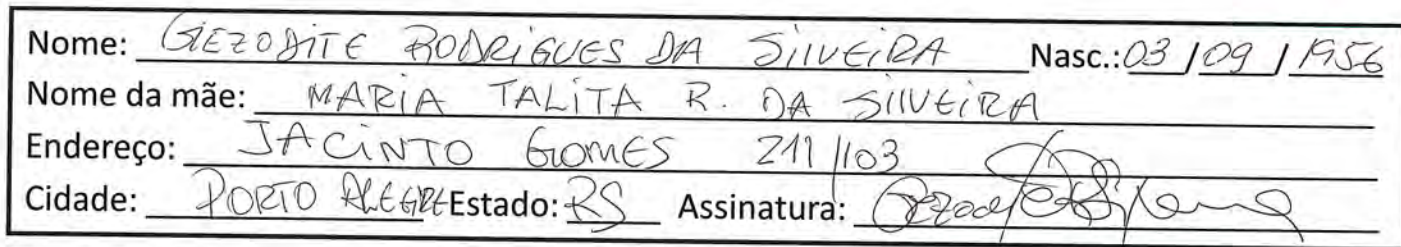 Nome: GIEZODITE RODRIGUES DA SILVEIRA Nasc.: 03 / 09 / 1956
Nome da mãe: MARIA TALITA R. DA SILVEIRA
Endereço: JACINTO GOMES 211/103
Cidade: PORTO ALEGRE Estado: RS Assinatura: